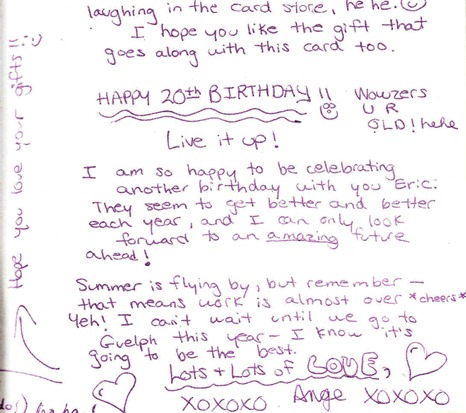 laughing in the card store, he he. ☺
I hope you like the gift that
goes along with this card too.
HAPPY 20th BIRTHDAY!! ☺
Wowzers
U R
OLD! hehe
Live it up!
I am so happy to be celebrating
another birthday with you Eric.
They seem to get better and better
each year, and I can only look
forward to an amazing future
ahead!
Summer is flying by, but remember –
that means work is almost over *cheers*
Yeh! I can't wait until we go to
Guelph this year – I know it's
going to be the best.
Lots + Lots of LOVE,
XOXOXO Ange XOXOXO
Hope you love your gifts!! :)